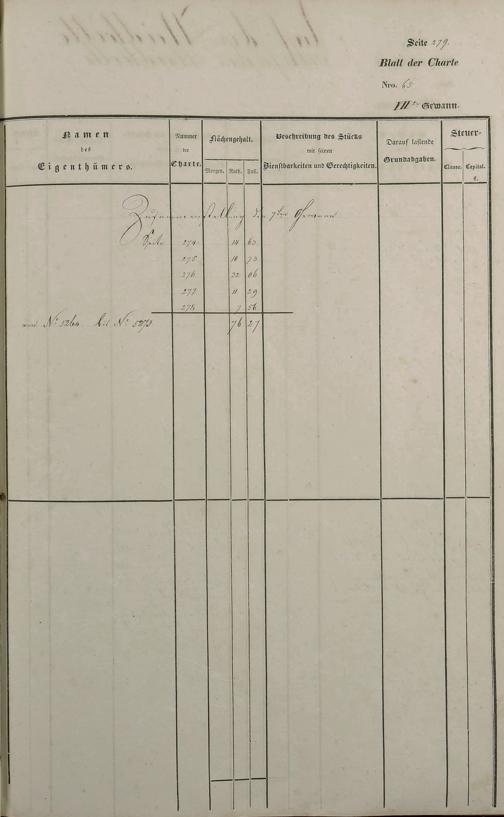 Seite 279.
Blatt der Charte
Nro. 65
VII te Gewann.
Namen
des
Eigenthümers.
Nummer
der
Charte.
Flächengehalt.
Morgen. Ruth. Fuß.
Beschreibung des Stücks
mit seinen
Dienstbarkeiten und Gerechtigkeiten.
Darauf lastende
Grundabgaben.
Steuer-
Classe. Capital.
fl.
Zusammenstellung der 7ten Gewann
Seite 274 14 63
275 10 73
276 32 06
277 11 29
278 7 56
von No 5260 bis No 5273 76 27